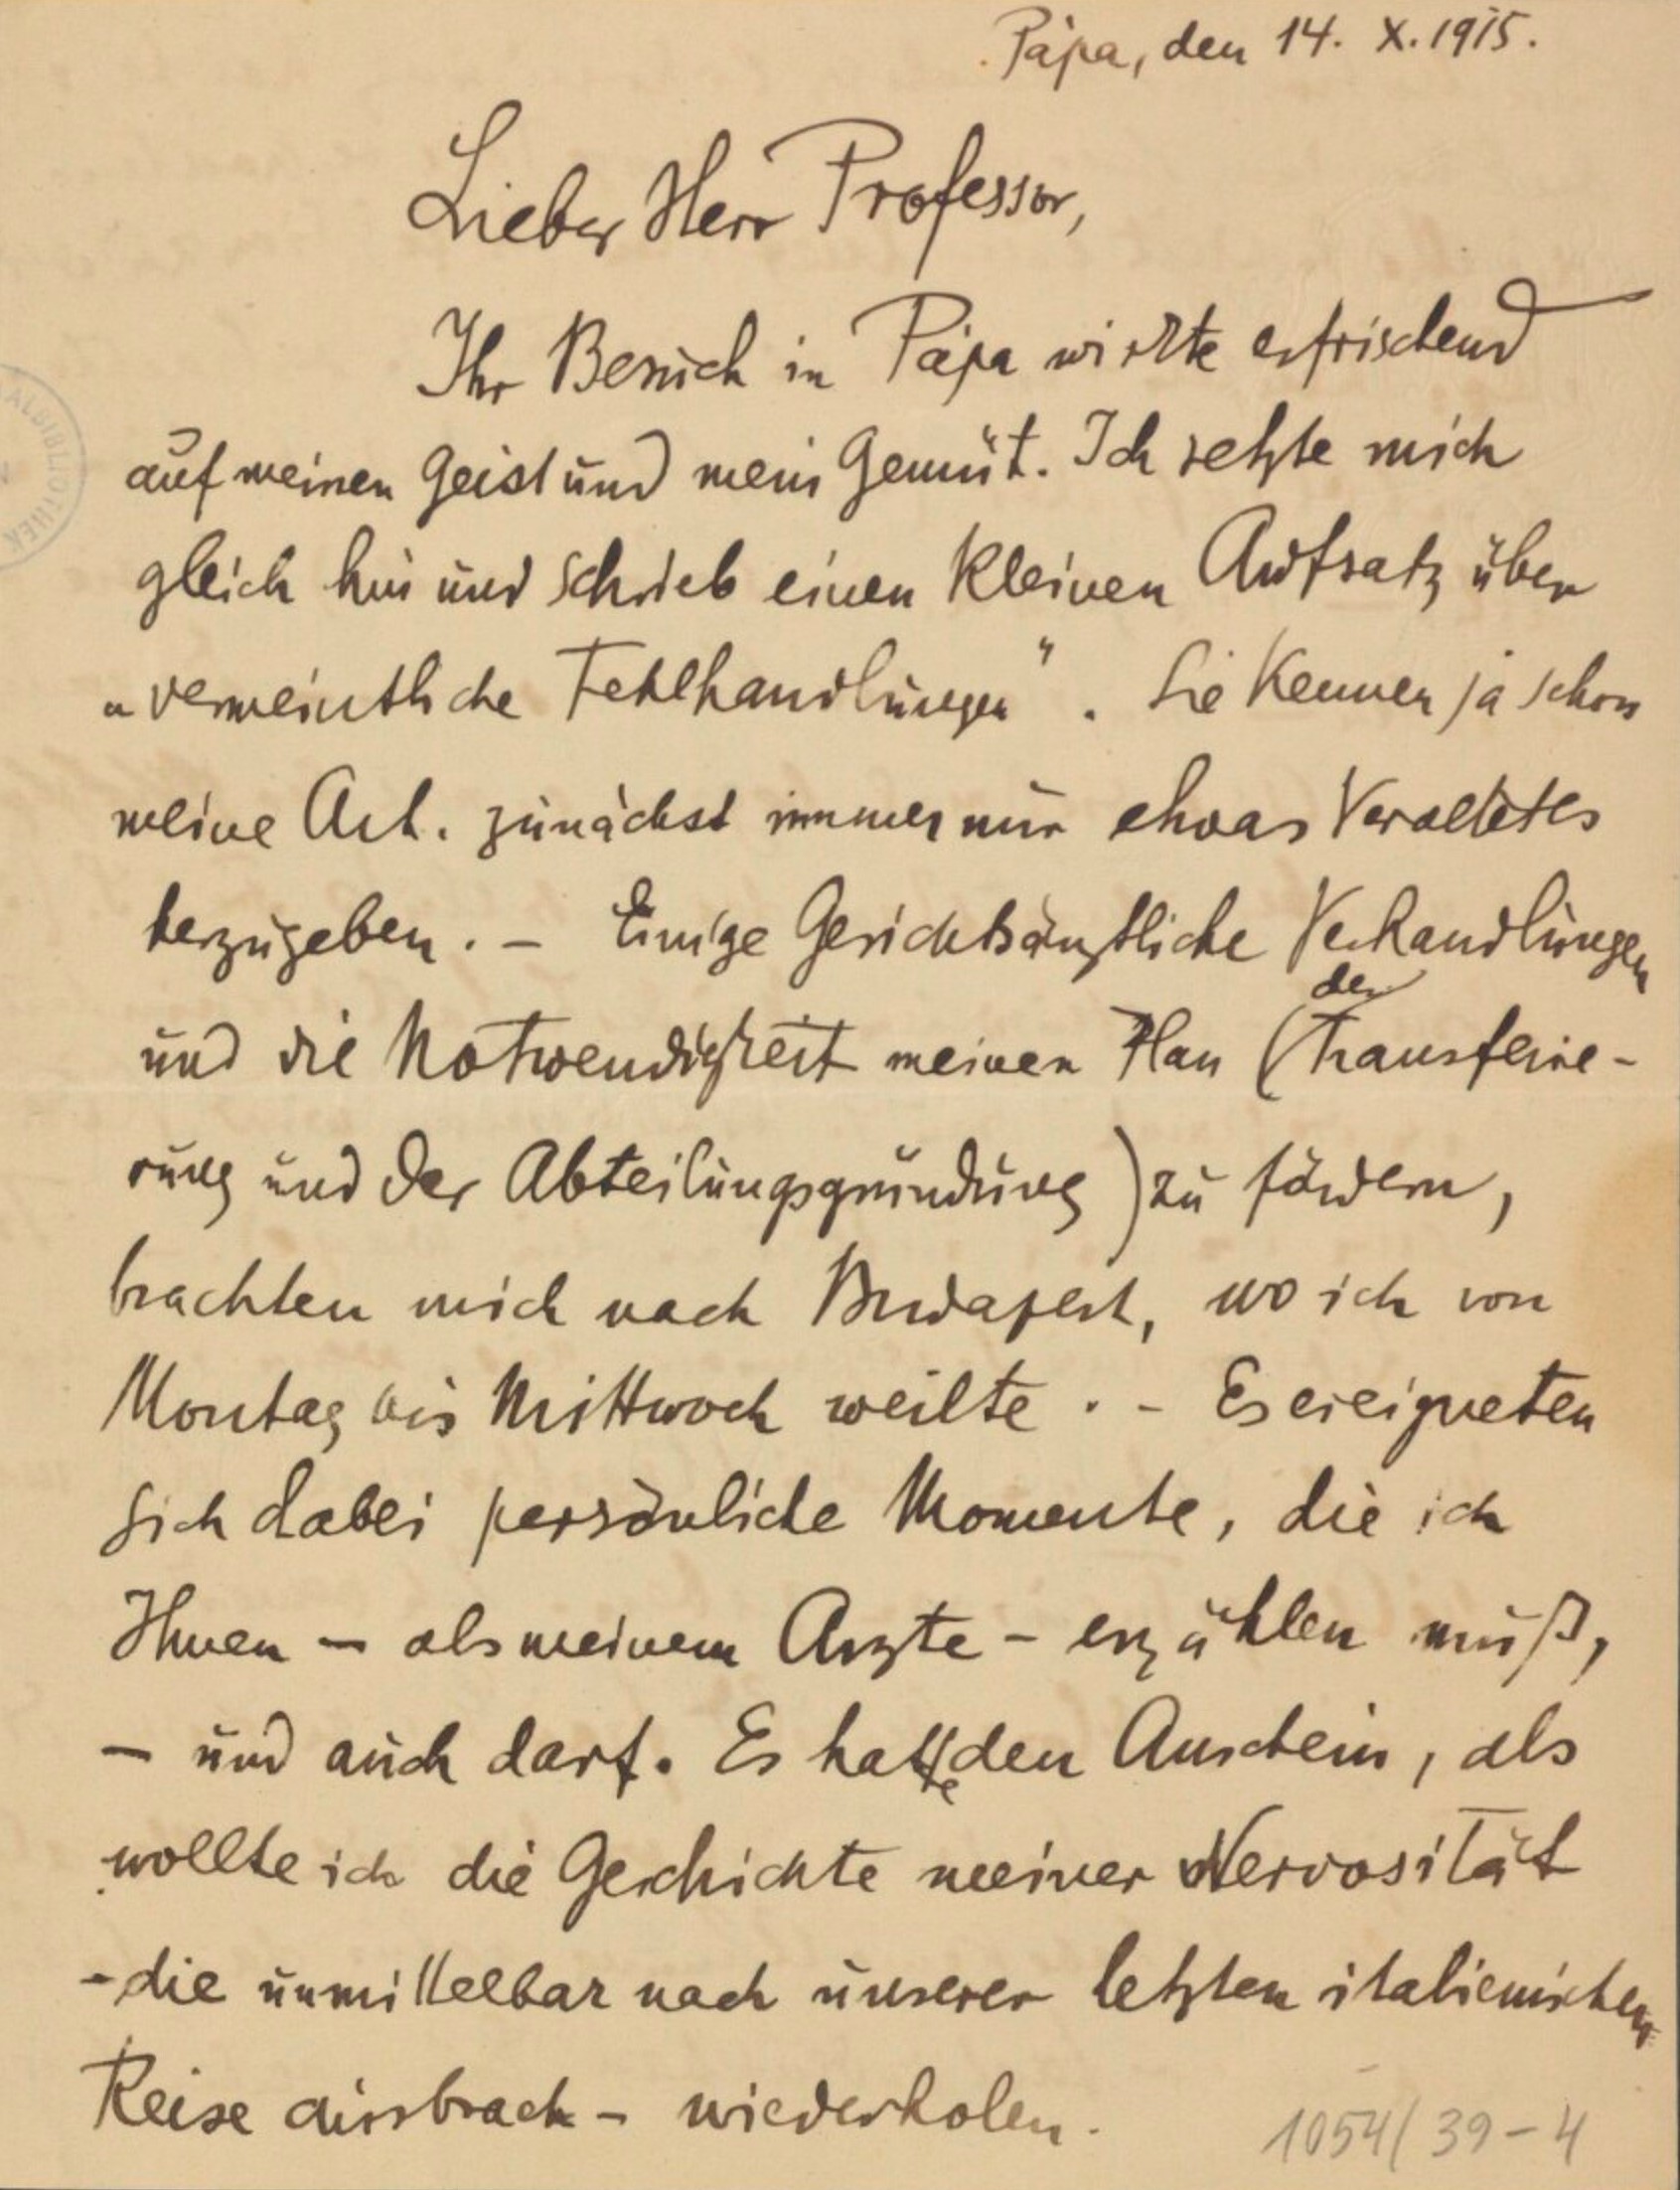 Pápa, den 14. X. 1915.
Lieber Herr Professor,
Ihr Besuch in Pápa wirkte erfrischend
auf meinen Geist und mein Gemüt. Ich setzte mich
gleich hin und schrieb einen kleinen Aufsatz über
„vermeintliche Fehlhandlungen“. Sie kennen ja schon
meine Art. zunächst immer nur etwas Veraltetes
herzugeben. – Einige Gerichtsärztliche Verhandlungen
der
und die Notwendigkeit meinen Plan (Transferie-
rung und der Abteilungsgründung) zu fördern,
brachten mich nach Budapest, wo ich von
Montag bis Mittwoch weilte. – Es ereigneten
sich dabei persönliche Momente, die ich
Ihnen – als meinem Arzte – erzählen muß,
– und auch darf. Es hatte den Anschein, als
wollte ich die Geschichte meiner Nervosität
– die unmittelbar nach unserer letzten italienischen
Reise ausbrach – wiederholen.
1054/39-4
ALBIBLIOTHEK